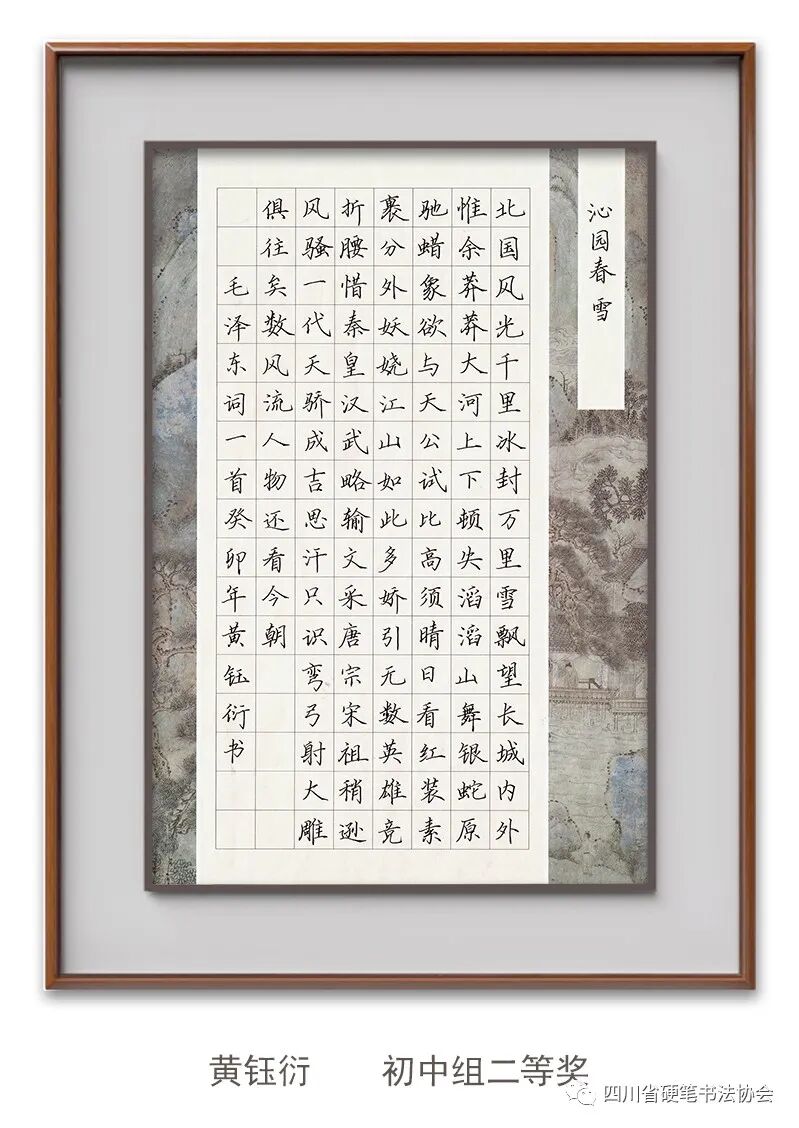 沁园春 雪
北国风光千里冰封万里雪飘望长城内外
惟余莽莽大河上下顿失滔滔山舞银蛇原
驰蜡象欲与天公试比高须晴日看红装素
裹分外妖娆江山如此多娇引无数英雄竞
折腰惜秦皇汉武略输文采唐宗宋祖稍逊
风骚一代天骄成吉思汗只识弯弓射大雕
俱往矣数风流人物还看今朝
毛泽东词一首癸卯年黄钰衍书
黄钰衍 初中组二等奖
四川省硬笔书法协会